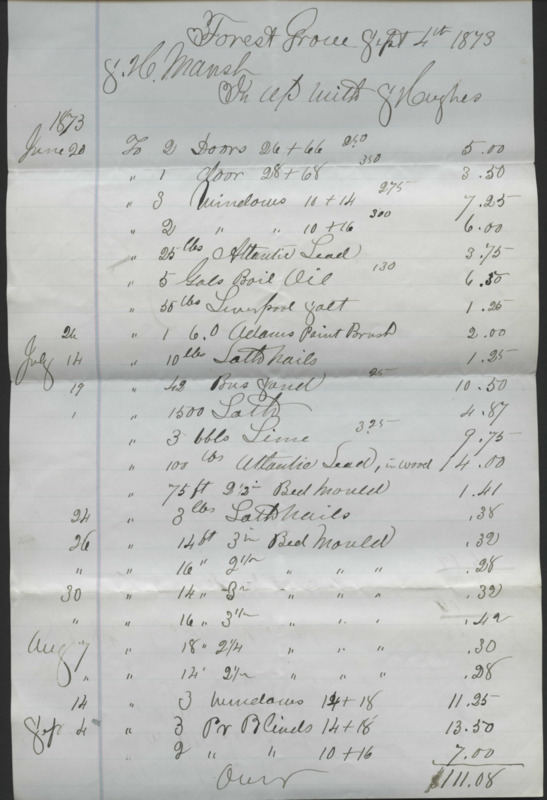 Forest Grove Sept 4th 1873
J. H. Marsh
In acpt with J Hughes
1873
June 20 To 2 Doors 26+66 250 5.00
" 1 door 28+68 350 3.50
" 3 Windows 10+14 275 7.25
" 2 " " 10+16 300 6.00
" 25 lbs Atlantic Lead 3.75
" 5 Gals Boil Oil 130 6.50
" 50 lbs Liverpool Salt 1.25
26 " 1 6.0 Adams Paint Brush 2.00
July 14 " 10 lbs Lath Nails 1.25
19 " 42 Bus Sand 25 10.50
" 1500 Lath 4.87
" 3 bbls Lime 325 9.75
" 100 lbs Atlantic Lead, in wood 14.00
" 75 ft 2 1/2 Bed Mould 1.41
24 " 3 lbs Lath Nails .38
26 " 14 ft 3 in Bed Mould .32
" " 16 " 2 1/2 " " " .28
30 " 14 " 3 in " " " .32
" " 16 " 3 1/2 " " " .42
Aug 7 " 18 " 2 1/4 " " " .30
" " 14 " 2 1/2 " " " .28
14 " 3 Windows 14+18 11.25
Sep 4 " 3 Pr Blinds 14+18 13.50
" 2 " " 10+16 7.00
Over $111.08